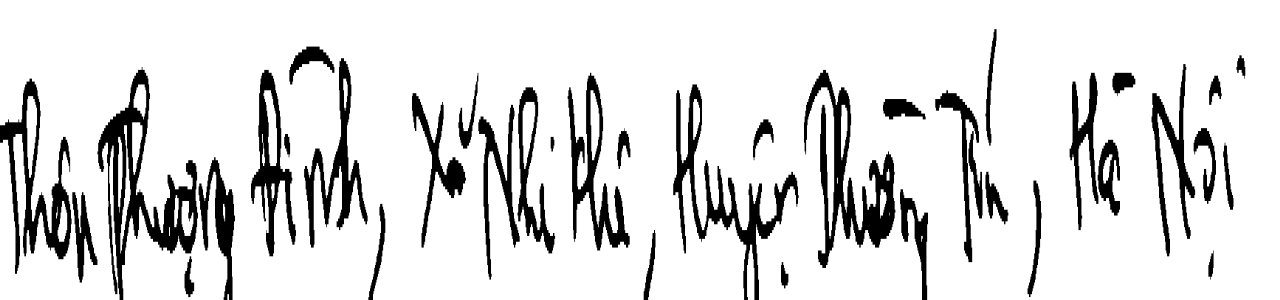 Thôn Phượng Đình, Xã Nhị Khê, Huyện Thường Tín, Hà Nội